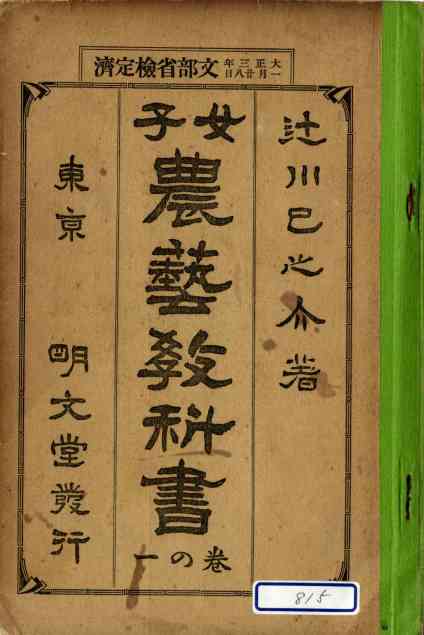 大正三年一月廿八日文部省檢定濟
辻川巳之介著
女子
農藝教科書
巻の一
東京 明文堂發行
815